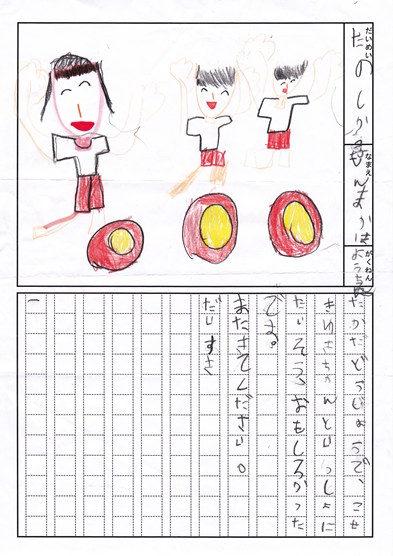 だいめい
たのしかった
なまえ
がくねん
ようちえん
たかだどうじょうで、こせ
きゆさちゃんといっしょに
たいそう おもしろかった
です。
またきてください。
だいすき